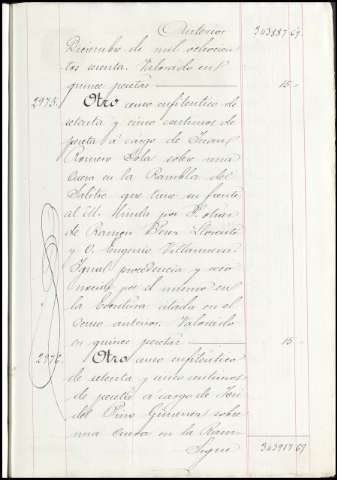 Anterior 343887 69
Diciembre de mil ochocien
tos setenta. Valorado en
quince pesetas 15 -
2975. Otro censo enfitéutico de
setenta y cinco centimos de
peseta á cargo de Juan
Romero Sola sobre una
Cueva en la Rambla del
Salitre que tiene su frente
al M. linda por
de Ramon Perez Llorente
y O. Eugenio Villanueva
Igual procedencia y reco
nocido por el mismo en
la Escritura citada en el
Censo anterior. Valorado
en quince pesetas 15 -
2976. Otro censo enfitéutico
de setenta y cinco centimos
de peseta á cargo de José
del Pino Gimenez sobre
una Cueva en la Ram
Sigue 343917 69